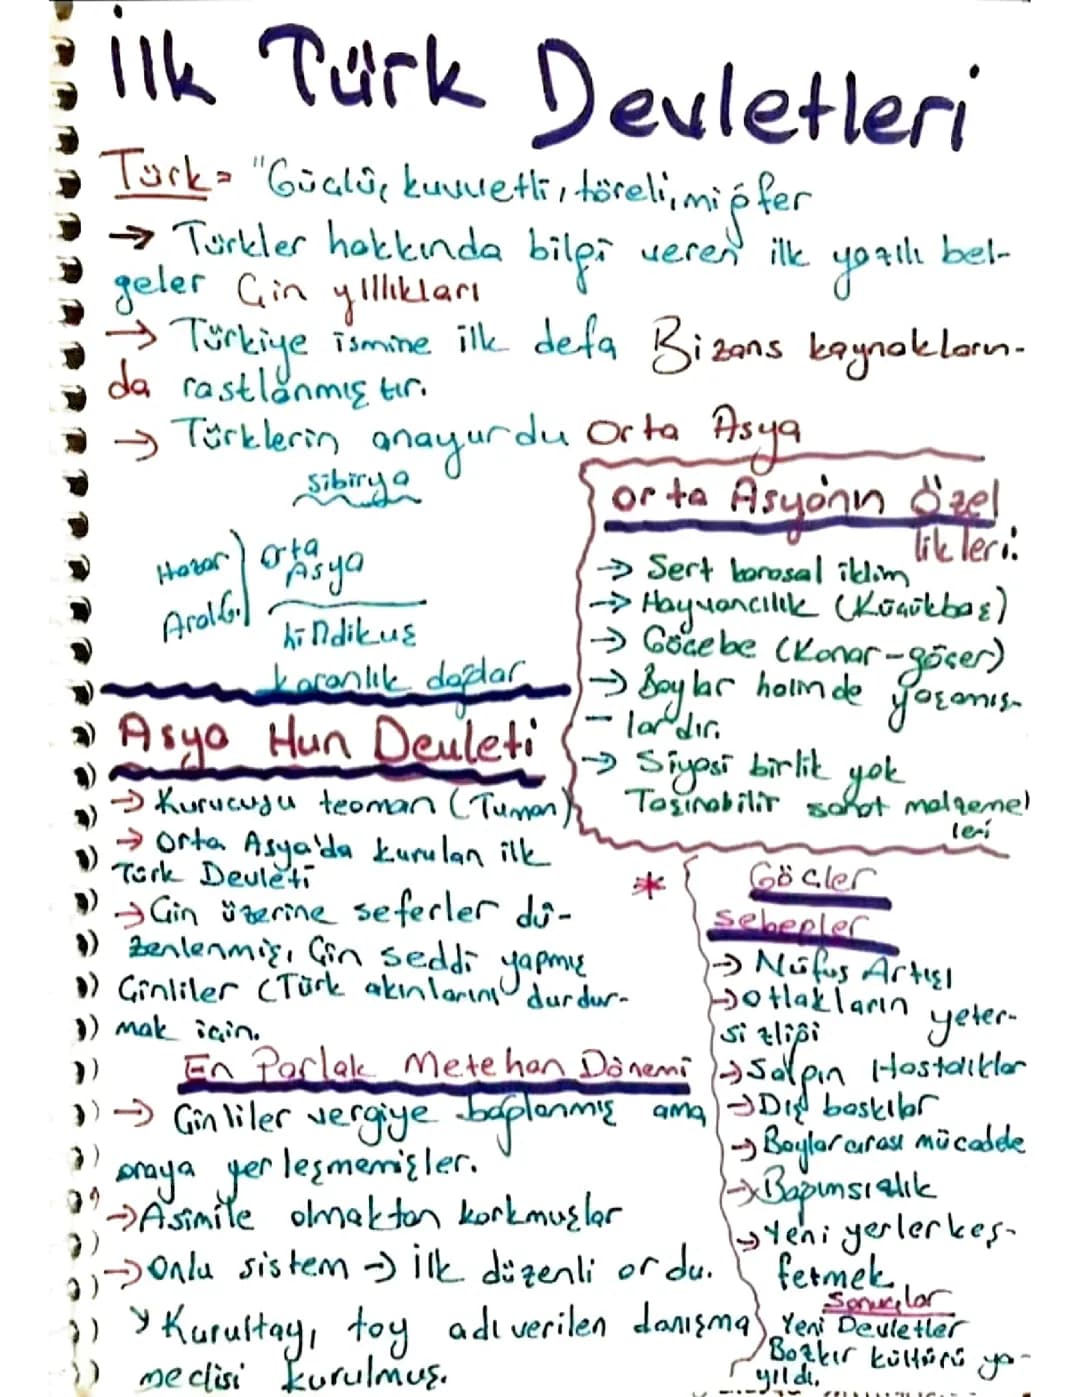 İlk Türk Devletleri
Türk = "Güçlü, kuvvetli, töreli, miğfer
→ Türkler hakkında bilgi veren ilk yazılı bel-
geler Çin yıllıkları
→ Türkiye ismine ilk defa Bizans kaynakların-
da rastlanmıştır.
→ Türklerin anayurdu Orta Asya
Sibirya
Hazar
Aral G.
Orta
Asya
hindikuş
karanlık dağlar
Orta Asya'nın Özel
likleri:
→ Sert karasal iklim
→ Hayvancılık (Küçükbaş)
→ Göçebe (Konar-göçer)
→ Boylar halinde yaşamış-
lardır.
→ Siyasi birlik yok
Taşınabilir sanat malzemel
leri
Asya Hun Devleti
→ Kurucusu teoman (Tuman)
→ Orta Asya'da kurulan ilk
Türk Devleti
→ Çin üzerine seferler dü-
zenlenmiş, Çin seddi yapmış
Çinliler (Türk akınlarını durdur-
mak için.
En Parlak Metehan Dönemi
→ Çinliler vergiye bağlanmış ama
oraya yerleşmemişler.
→ Asimile olmaktan korkmuşlar
→ Onlu sistem → ilk düzenli ordu.
Kurultay, toy adı verilen danışma
meclisi kurulmuş.
* Göçler
sebepler
→ Nüfus Artışı
→ otlakların yeter-
sizliği
→ Salgın Hastalıklar
→ Dış baskılar
→ Boylar arası mücadde
→ Bağımsızlık
→ Yeni yerler keş-
fetmek
Sonuçlar
Yeni Devletler
Bozkır kültürü ya-
yıldı.